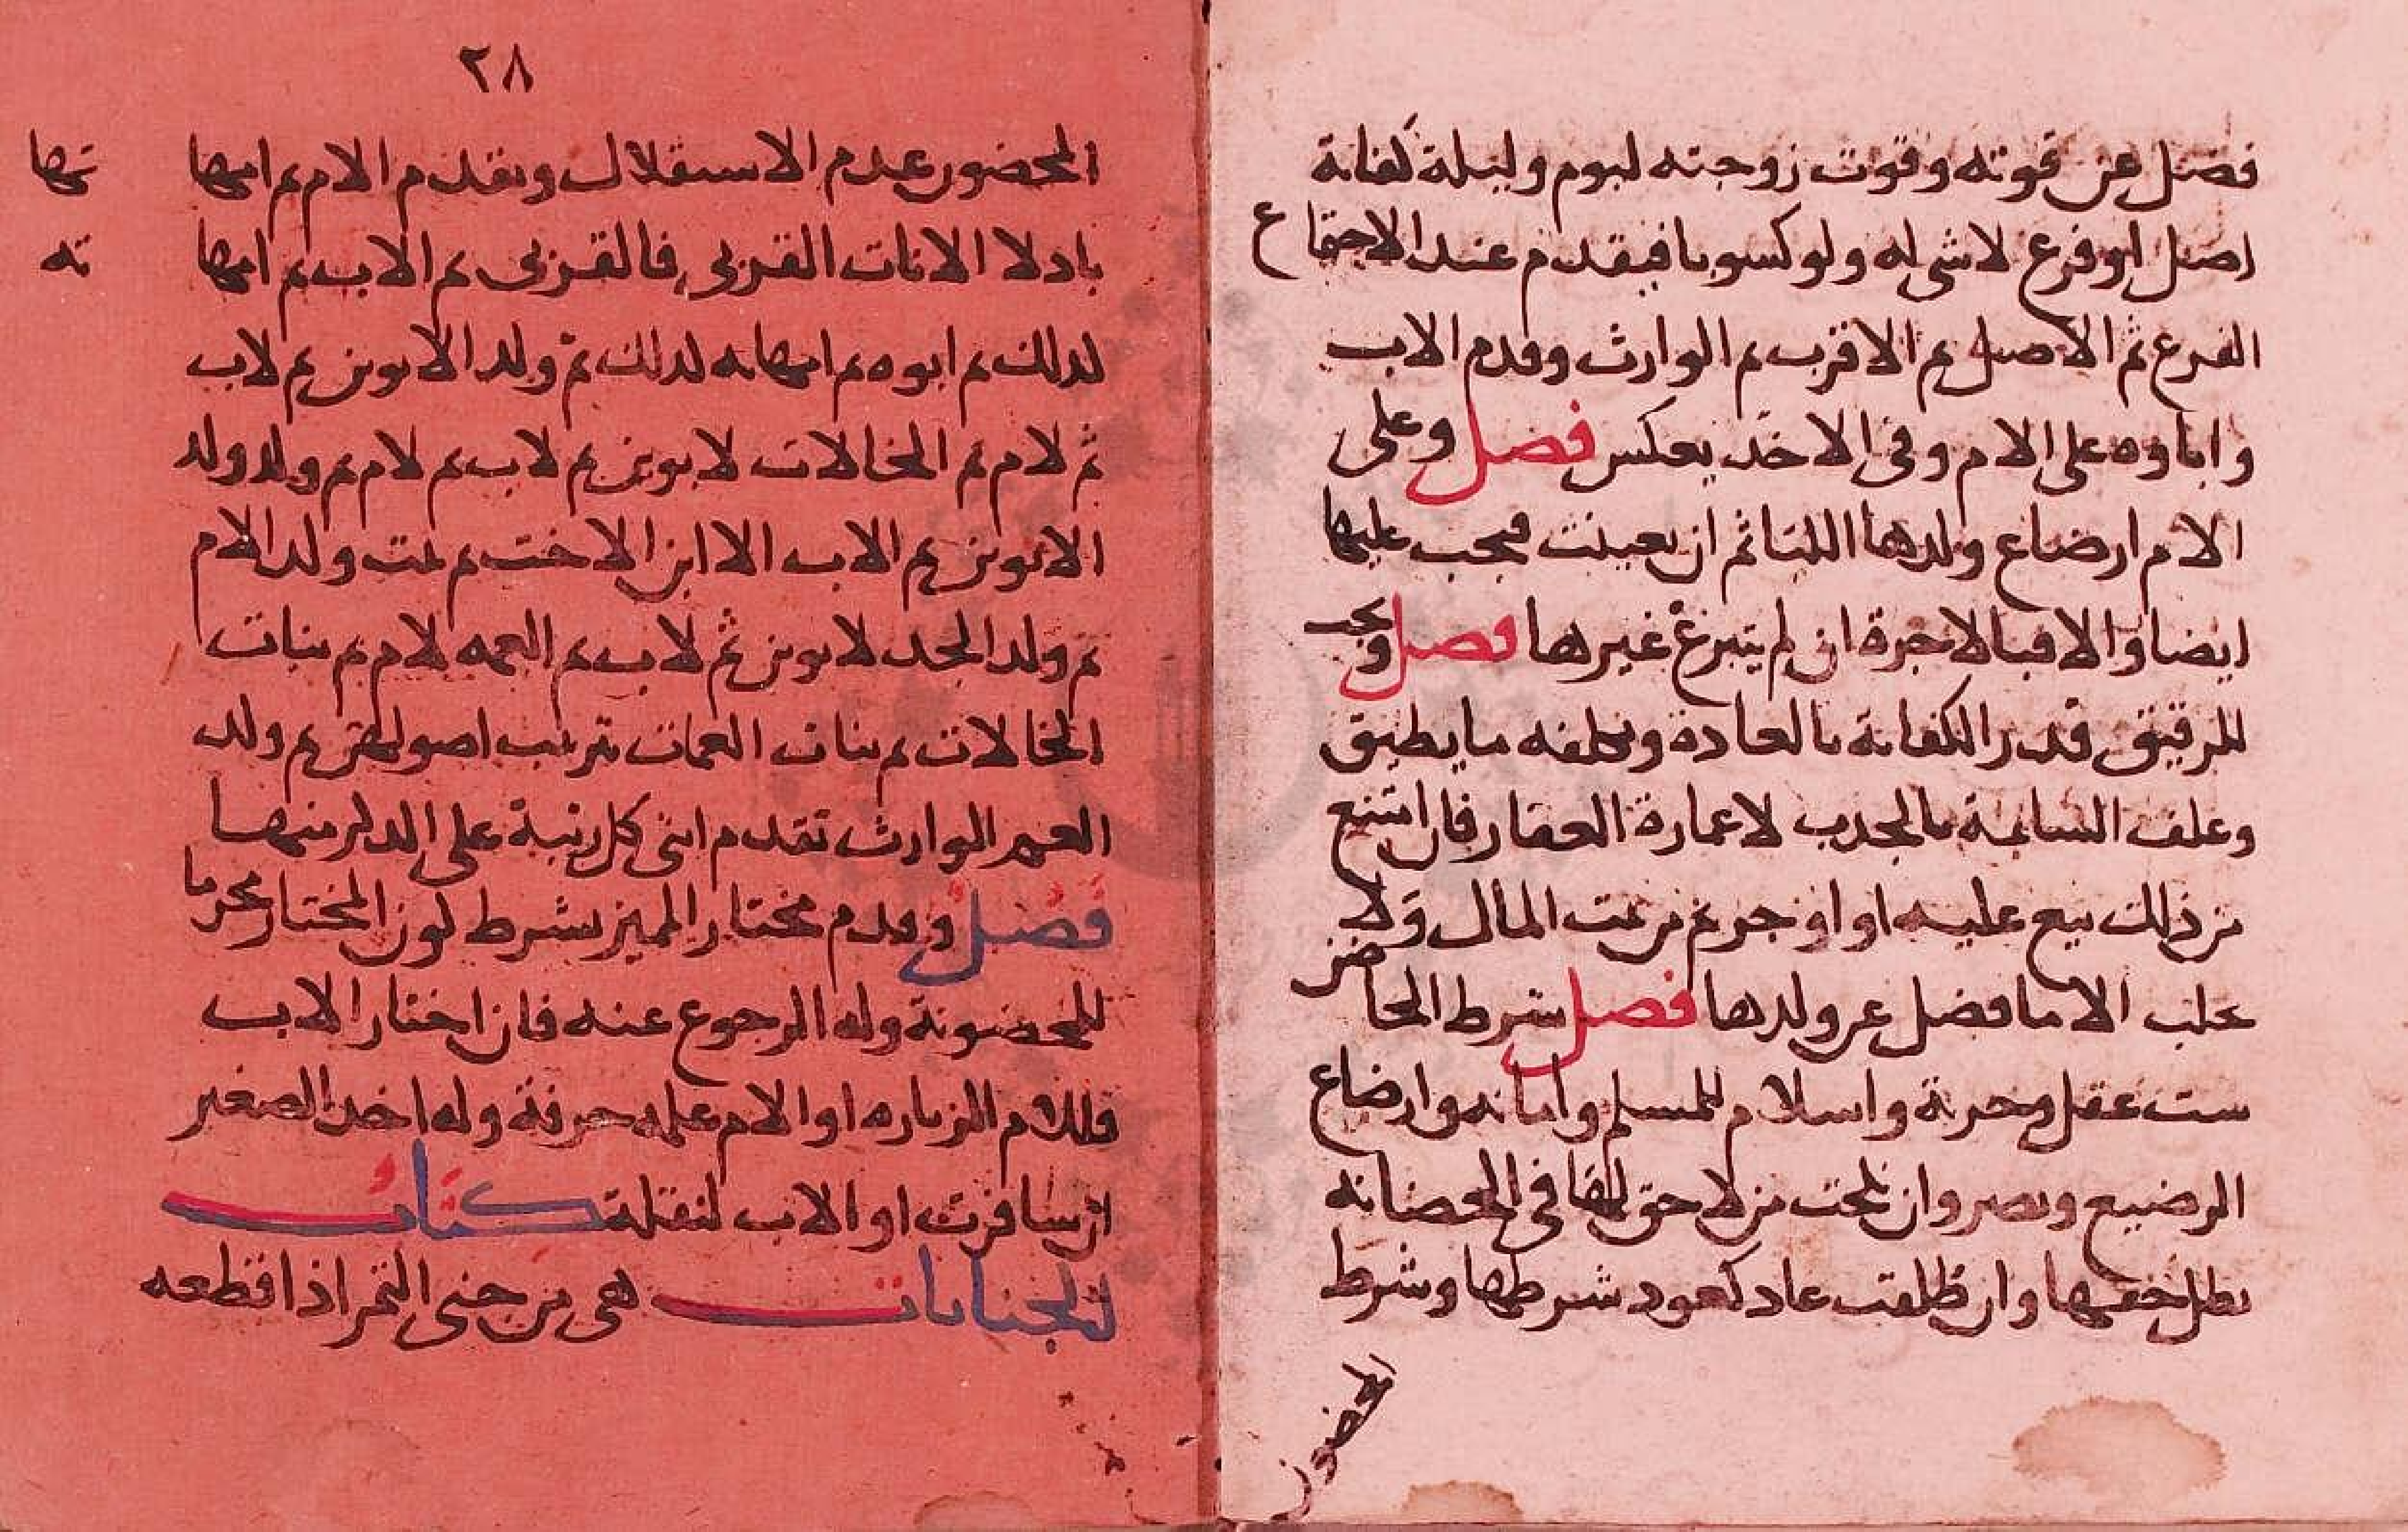 فضل عن قوته وقوت زوجته ليوم وليلة كفاية
اصل او فرع لا شي له ولو كسوبا فيقدم عند الاجتماع
الفرع ثم الاصل ثم الاقرب ثم الوارث وقدم الاب
واباوه على الام وفي الاخذ بعكس فصل وعلى
الام ارضاع ولدها اللبا ثم ان تعينت فيجب عليها
ايضا والا فبالاجرة ان لم يتبرع غيرها فصل ويجب
للرقيق قدر الكفاية بالعادة ويكلفه ما يطيق
وعلف السايمة بالجدب لا عمارة العقار فان امتنع
من ذلك بيع عليه او اوجر ثم من بيت المال ولا
يحلب الا ما فضل عن ولدها فصل شرط الحاضن
ست عقل وحرية واسلام للمسلم وامانه وارضاع
الرضيع وبصر وان نكحت من لا حق له في الحضانه
بطل حقها وان طلقت عاد كعود شرطها وشرط
المحضون
٢٨
المحضور عدم الاستقلال وتقدم الام ثم امهاتها
بادلا الاناث القربى فالقربى ثم الاب ثم امهاته
لذلك ثم ابوه ثم امهاته لذلك ثم ولد الابوين ثم لاب
ثم لام ثم الخالات لابوين ثم لاب ثم لام ثم ولد ولد
الابوين ثم الاب الا ابن الاخت ثم بنت ولد الام
ثم ولد الجد لابوين ثم لاب ثم العمه لام ثم بنات
الخالات ثم بنات العمات بترتيب اصولهن ثم ولد
العم الوارث تقدم انثى كل رتبة على الذكر منها
فصل وقدم مختار المميز بشرط كون المختار محرما
للمحضونة وله الرجوع عنه فان اختار الاب
فللام الزياره او الام علمه حرفة وله اخذ الصغير
ان سافرت او الاب لنقلة كتاب
الجنايات هي من جنى الثمر اذا قطعه